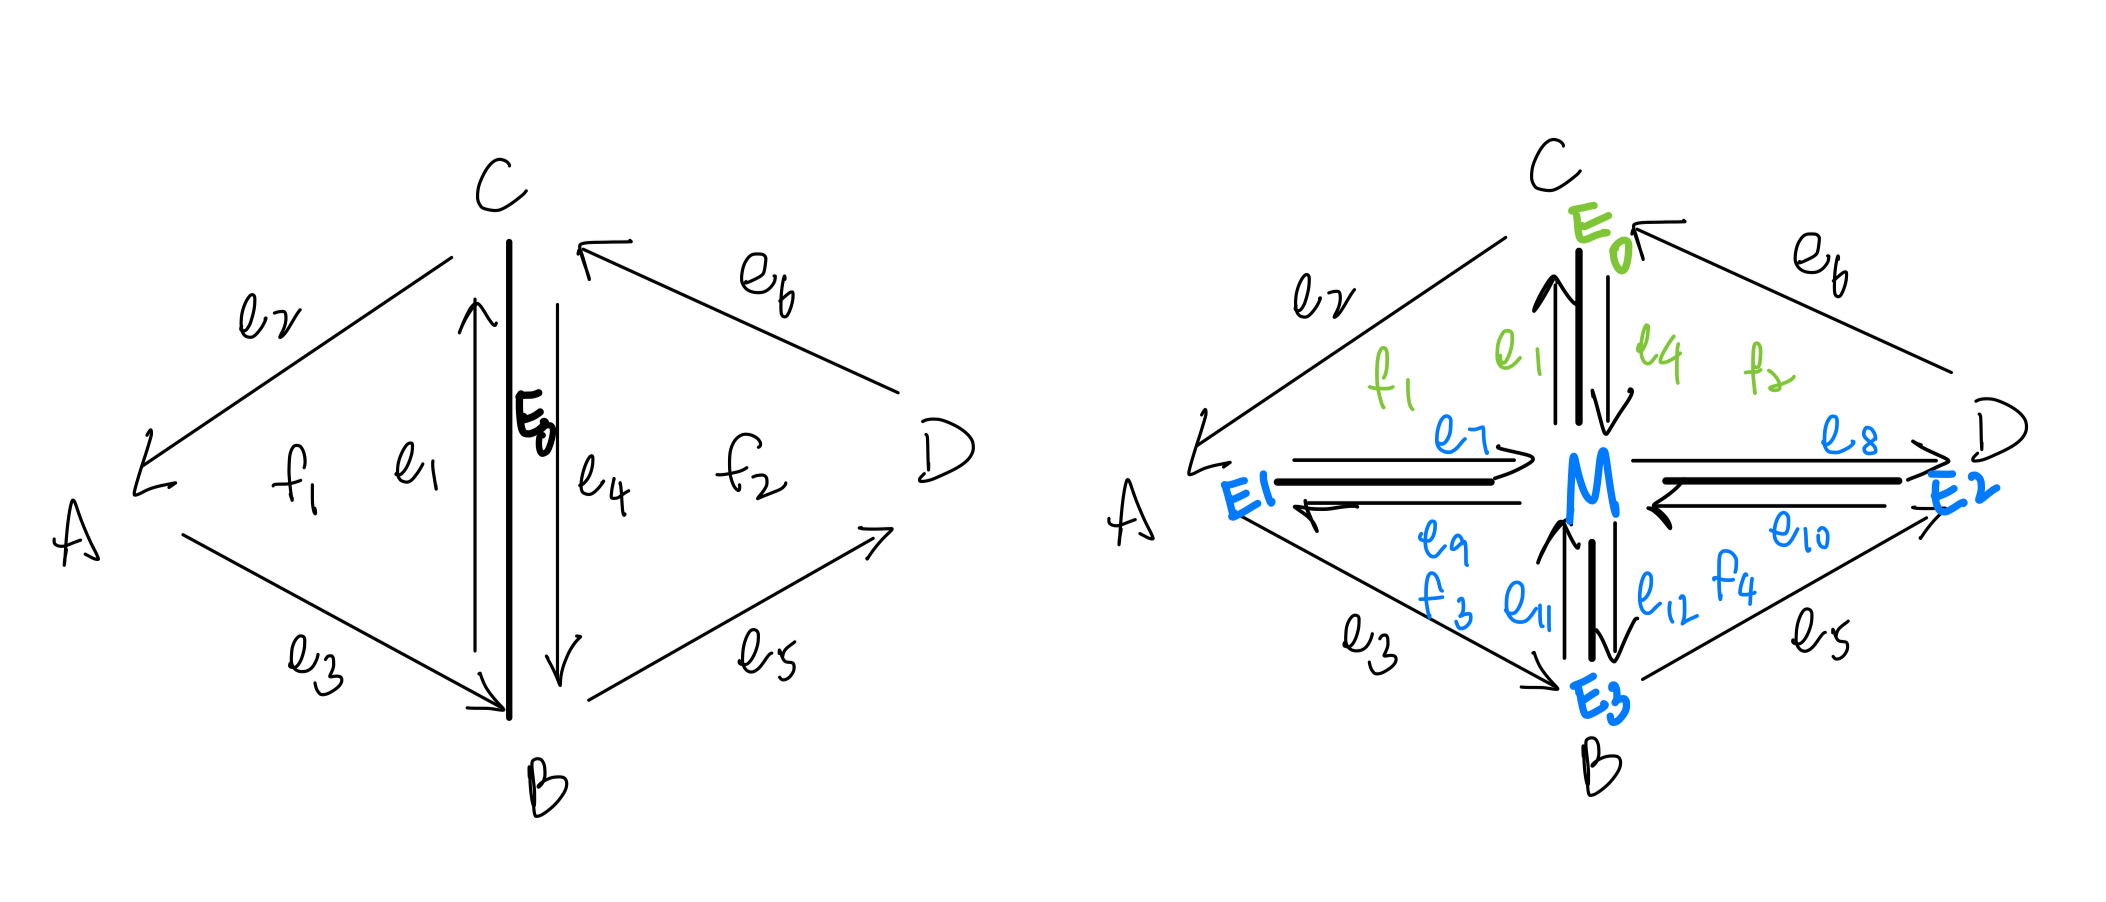 C
e2
e6
E0
A
f1
e1
e4
f2
D
e3
e5
B
C
E0
e2
e6
f1
e1
e4
f2
e7
e8
D
A
E1
M
E2
e9
e10
f3
e11
e12
f4
e3
e5
E3
B